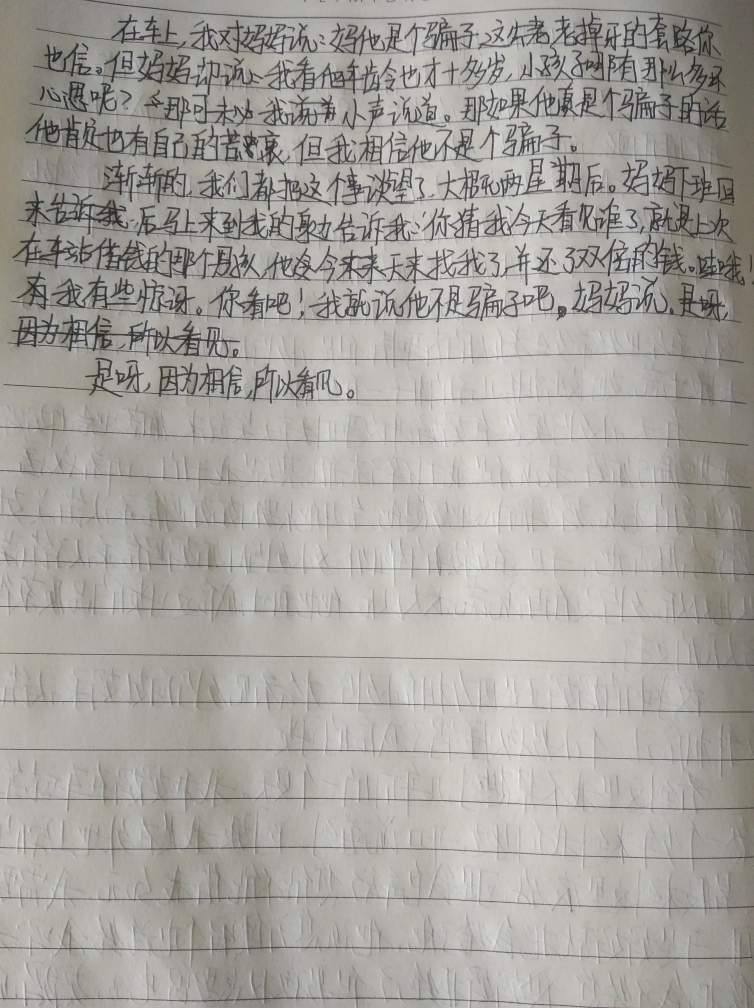 在车上,我对妈妈说:妈他是个骗子,这么老老掉牙的套路你
也信。但妈妈却说:我看他年龄令也才十多岁,小孩子哪有那么多坏
心思呢?那可未必 我说着小声说道。那如果他真是个骗子的话
他肯定也有自己的苦衷,但我相信他不是个骗子。
渐渐的,我们都把这个事谈望了,大概两星期后。妈妈下班回
来告诉我,后马上来到我的身边告诉我:你猜我今天看见谁了,就是上次
在车站借钱的那个男孩,他今来天来找我了,并还了双倍的钱。哇哦!
我有些惊讶。你看吧!我就说他不是骗子吧。妈妈说,是呀,
因为相信,所以看见。
是呀,因为相信,所以看见。